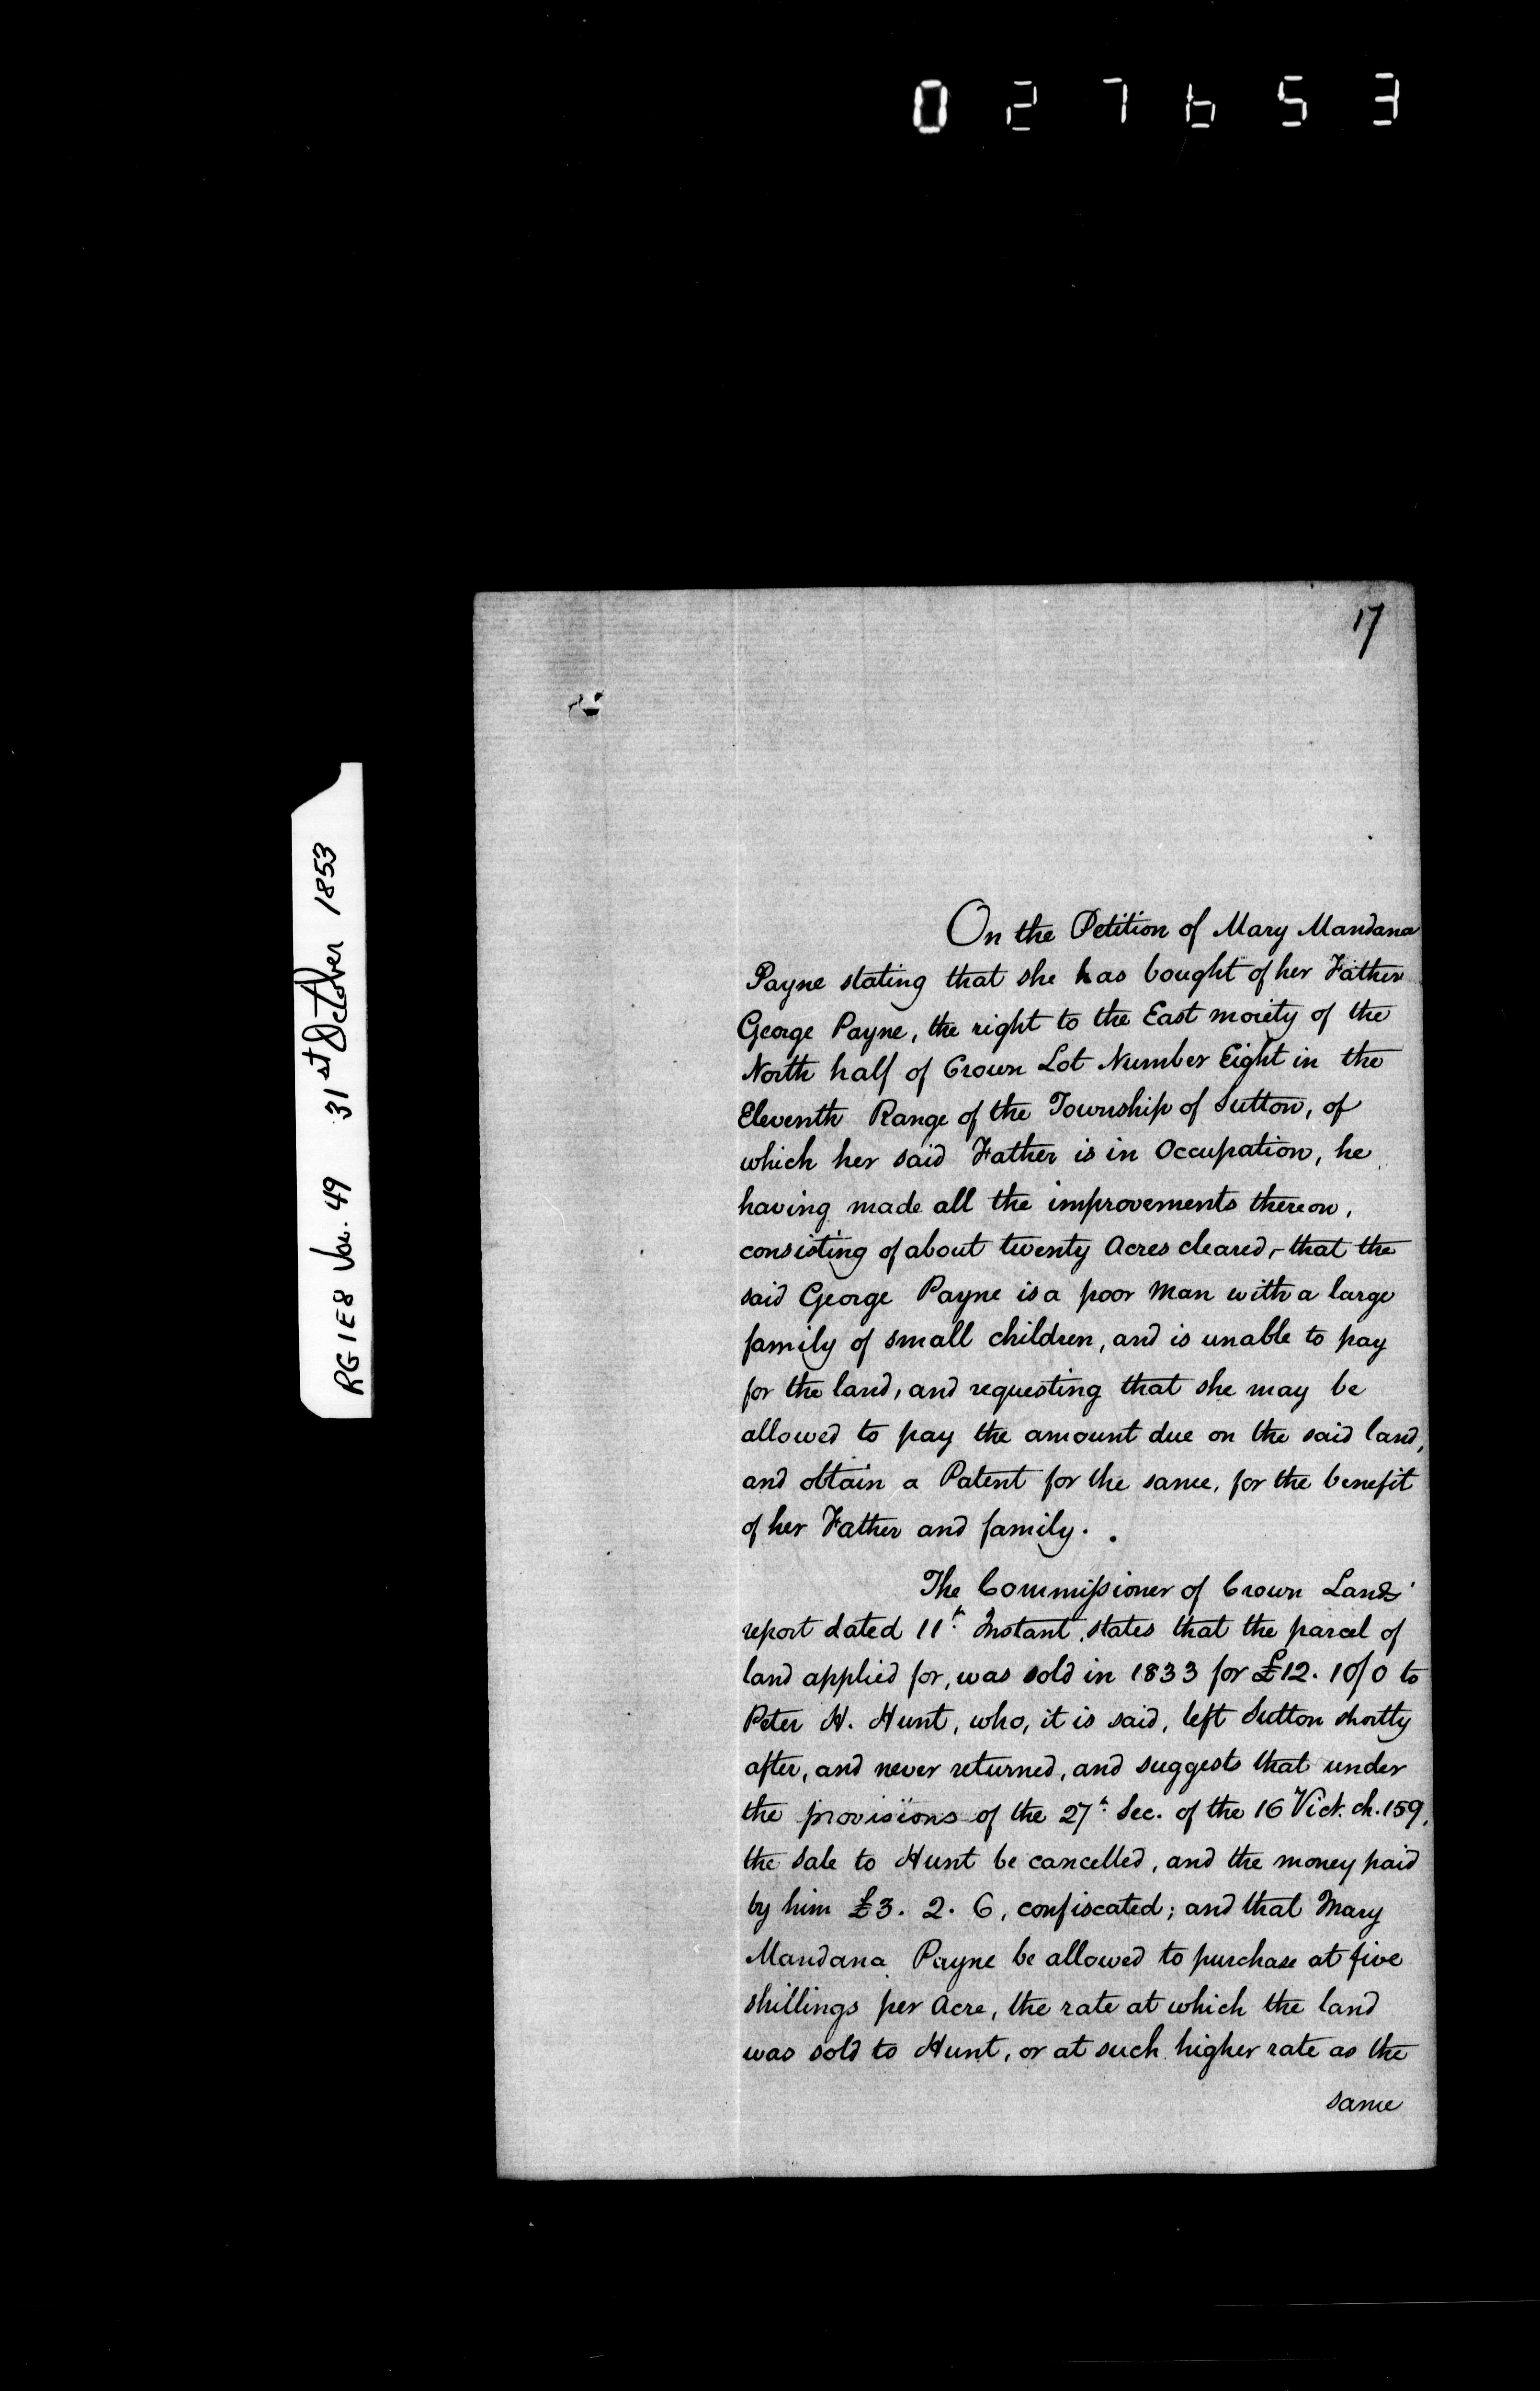 027653
17
RG 1 E8 Vol. 49 31st October 1853
On the Petition of Mary Mandana
Payne stating that she has bought of her Father
George Payne, the right to the East moiety of the
North half of Crown Lot Number Eight in the
Eleventh Range of the Township of Sutton, of
which her said Father is in Occupation, he
having made all the improvements thereon,
consisting of about twenty Acres cleared,- that the
said George Payne is a poor Man with a large
family of small children, and is unable to pay
for the land, and requesting that she may be
allowed to pay the amount due on the said land,
and obtain a Patent for the same, for the benefit
of her Father and family.
The Commissioner of Crown Lands'
report dated 11th Instant, states that the parcel of
land applied for, was sold in 1833 for £12. 10/0 to
Peter H. Hunt, who, it is said, left Sutton shortly
after, and never returned, and suggests that under
the provisions of the 27th Sec. of the 16 Vict. ch. 159,
the Sale to Hunt be cancelled, and the money paid
by him £3. 2. 6, confiscated; and that Mary
Mandana Payne be allowed to purchase at five
shillings per Acre, the rate at which the land
was sold to Hunt, or at such higher rate as the
same